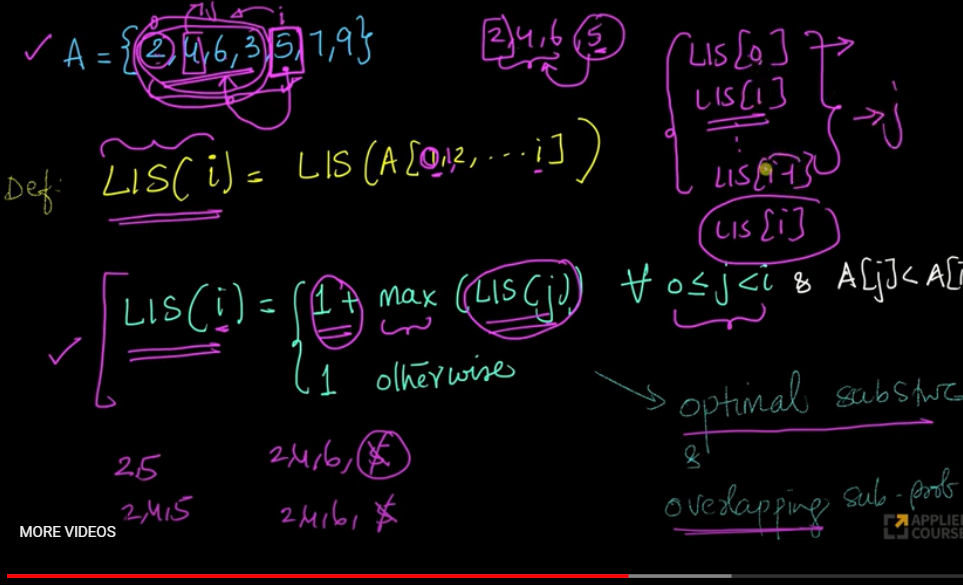 ✓ A = {2, 4, 6, 3, 5, 7, 9}
i
2, 4, 6, 5
LIS[0]
LIS[1]
⋮
LIS[i-1]
→ j
LIS[i]
Def: LIS(i) = LIS(A[0,1,2, ... i])
✓ LIS(i) = { 1 + max (LIS(j)) ∀ 0 ≤ j < i & A[j] < A[i
1 otherwise
→ optimal substruc
&
overlapping sub-prob
2,5
2,4,6, 5
2,4,5
2,4,6, 5
MORE VIDEOS
APPLIE
COURSE